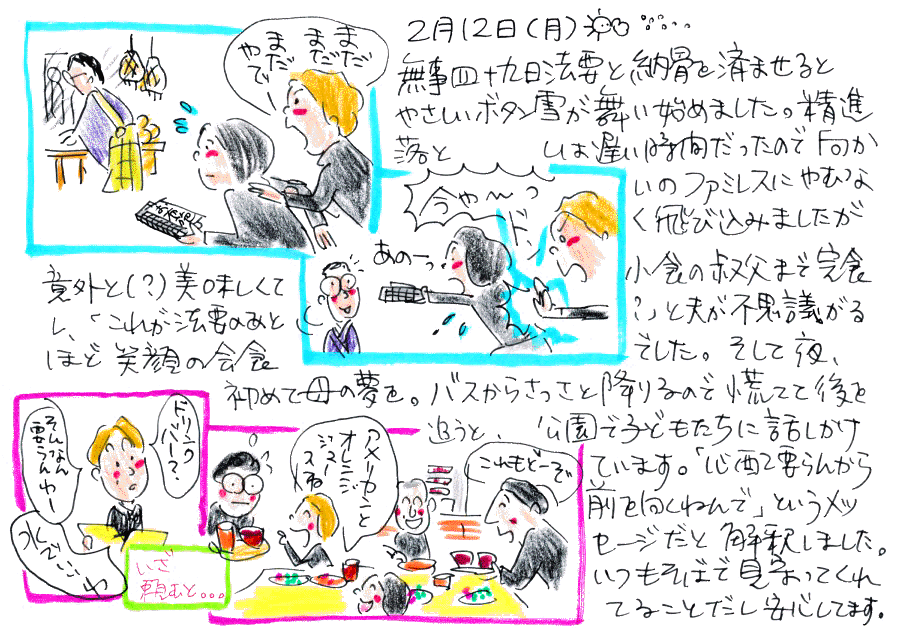 2月12日(月)
無事四十九日法要と納骨を済ませると
やさしいボタン雪が舞い始めました。精進
落としは遅い時間だったので向か
いのファミレスにやむな
く飛び込みましたが
意外と(?)美味しくて
小食の叔父まで完食
し、「これが法要のあと
?」と夫が不思議がる
ほど笑顔の会食
でした。そして夜、
初めて母の夢を。バスからさっさと降りるので慌てて後を
追うと、公園で子どもたちに話しかけ
ています。「心配要らんから
前を向くねんで」というメッ
セージだと解釈しました。
いつもそばで見守ってくれ
てることだし安心してます。
まだ
まだ
まだ
やで
今や〜っ
ドン
あのーっ
ドリンク
バー?
そんなん
要らんわー
水でいいわ
いざ
頼むと...
アメーカンと
オレンジ
ジュースね
これもどーぞ